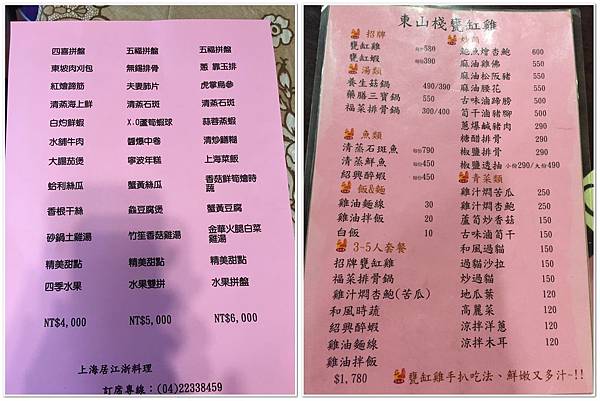 四喜拼盤 五福拼盤 五福拼盤
東坡肉刈包 無錫排骨 蔥㸆玉排
紅燴蹄筋 夫妻肺片 虎掌烏參
清蒸海上鮮 清蒸石斑 清蒸石斑
白灼鮮蝦 X.O蘆筍蝦球 蒜蓉蒸蝦
水舖牛肉 醬爆中卷 清炒鱔糊
大腸茄煲 寧波年糕 上海菜飯
蛤利絲瓜 蟹黃絲瓜 香菇鮮筍燴時蔬
香根干絲 蟹黃豆腐
砂鍋土雞湯 竹笙香菇雞湯 金華火腿白菜雞湯
精美甜點 精美甜點 精美甜點
四季水果 水果雙拼 水果拼盤
NT$4,000 NT$5,000 NT$6,000
上海居江浙料理
訂席專線：(04)22338459
東山棧甕缸雞
招牌
甕缸雞 580
甕缸蝦 390
湯類
養生菇鍋 490/390
藥膳三寶鍋 550
福菜排骨鍋 300/400
魚類
清蒸石斑魚 每份790
清蒸鮮魚 每份450
紹興醉蝦 每份450
飯&麵
雞油麵線 30
雞油拌飯 20
白飯 10
3-5人套餐
招牌甕缸雞
福菜排骨鍋
雞汁燜杏鮑(苦瓜)
和風時蔬
紹興醉蝦
雞油麵線
雞油拌飯
$1,780
鮑魚燴杏鮑 600
麻油雞佛 550
麻油松阪豬 550
麻油腰花 550
古味滷蹄膀 500
筍干滷豬腳 500
蔥爆鹹豬肉 290
糖醋排骨 290
椒鹽排骨 290
椒鹽透抽 小份290/大份490
青菜類
雞汁燜苦瓜 250
雞汁燜杏鮑 250
蘆筍炒香菇 150
古味滷筍干 150
和風過貓 150
過貓沙拉 150
炒過貓 150
地瓜葉 120
高麗菜 120
涼拌洋蔥 120
涼拌木耳 120
甕缸雞手扒吃法、鮮嫩又多汁~!!